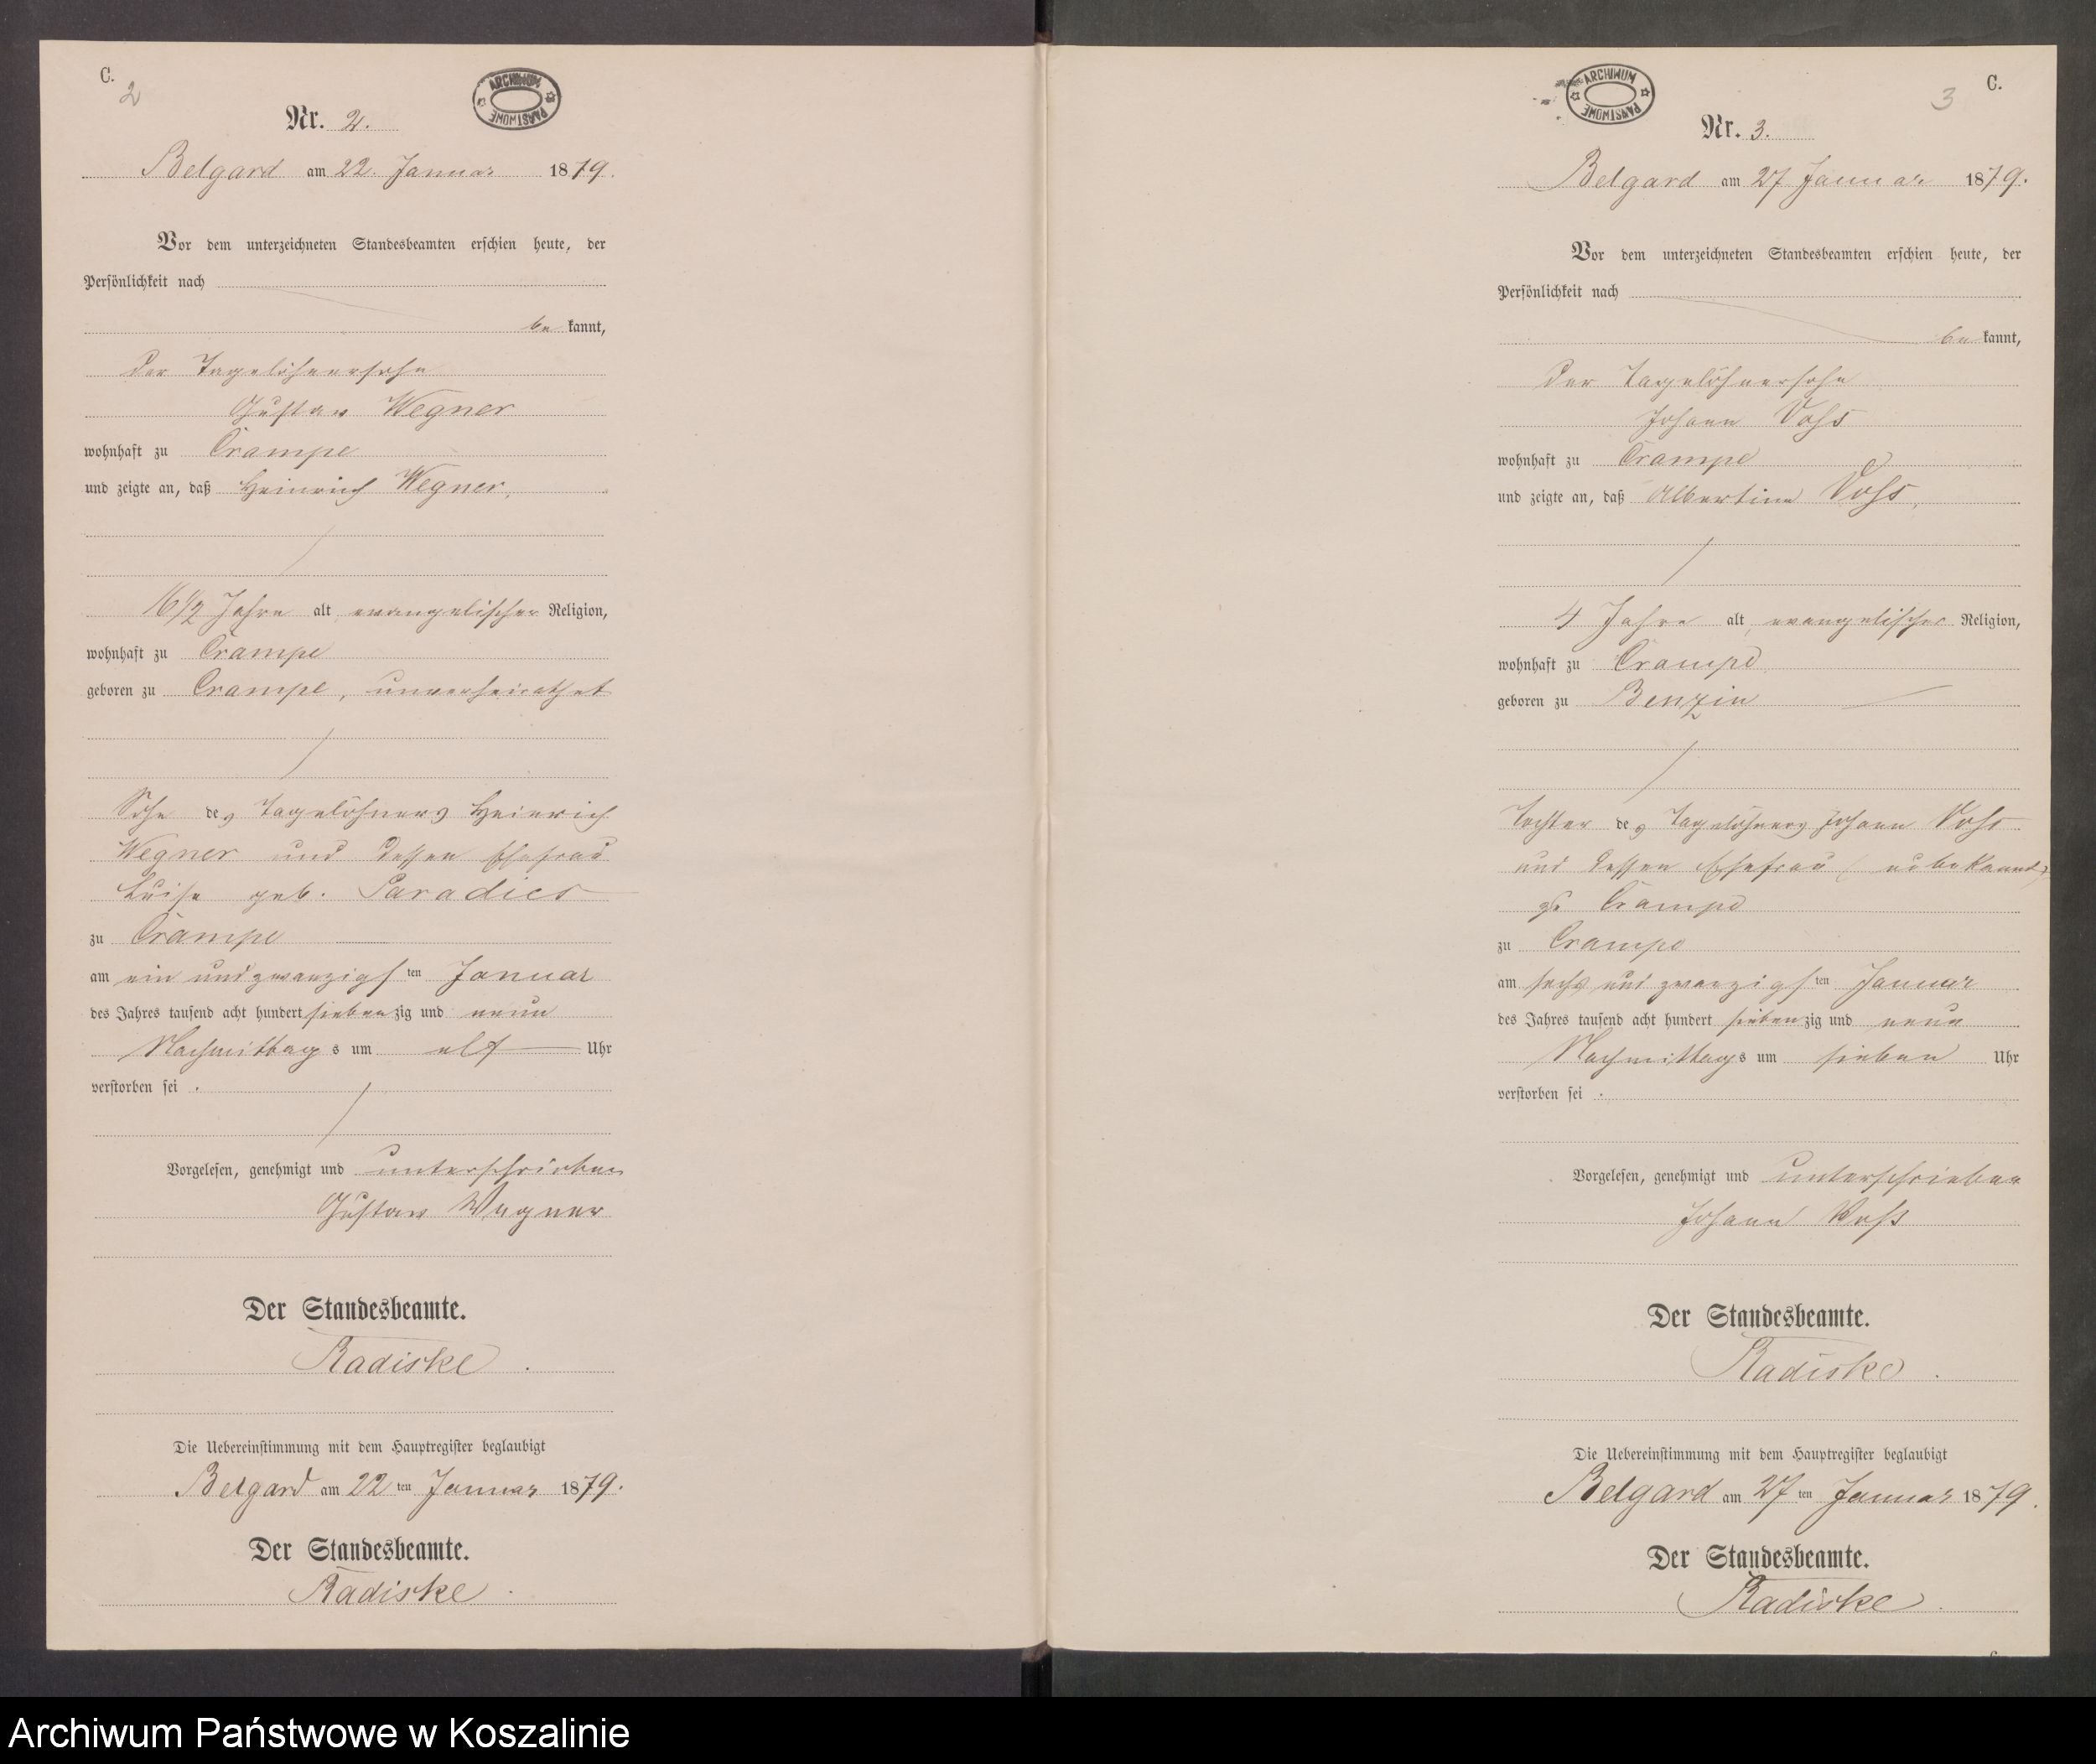 C.
2
ARCHIWUM PAŃSTWOWE
Nr. 2.
Belgard am 22. Januar 1879.
Vor dem unterzeichneten Standesbeamten erschien heute, der
Persönlichkeit nach
be kannt,
der Tagelöhnersohn
Gustav Wegner
wohnhaft zu Crampe
und zeigte an, daß Heinrich Wegner,
16 1/2 Jahre alt, evangelischer Religion,
wohnhaft zu Crampe
geboren zu Crampe, unverheirathet
Sohn des Tagelöhners Heinrich
Wegner und dessen Ehefrau
Luise geb. Paradies
zu Crampe
am ein und zwanzigsten Januar
des Jahres tausend acht hundert siebenzig und neun
Nachmittags um elf Uhr
verstorben sei.
Vorgelesen, genehmigt und unterschrieben
Gustav Wegner
Der Standesbeamte.
Radiske.
Die Uebereinstimmung mit dem Hauptregister beglaubigt
Belgard am 22ten Januar 1879.
Der Standesbeamte.
Radiske.
ARCHIWUM PAŃSTWOWE
C.
3
Nr. 3.
Belgard am 27 Januar 1879.
Vor dem unterzeichneten Standesbeamten erschien heute, der
Persönlichkeit nach
be kannt,
Der Tagelöhnersohn
Johann Vohs
wohnhaft zu Crampe
und zeigte an, daß Albertine Vohs,
4 Jahre alt, evangelischer Religion,
wohnhaft zu Crampe
geboren zu Benzin
Tochter des Tagelöhners Johann Vohs
und dessen Ehefrau (unbekannt)
zu Crampe
zu Crampe
am sechs und zwanzigsten Januar
des Jahres tausend acht hundert siebenzig und neun
Nachmittags um sieben Uhr
verstorben sei.
Vorgelesen, genehmigt und unterschrieben
Johann Voß
Der Standesbeamte.
Radiske.
Die Uebereinstimmung mit dem Hauptregister beglaubigt
Belgard am 27ten Januar 1879.
Der Standesbeamte.
Radiske.
Archiwum Państwowe w Koszalinie